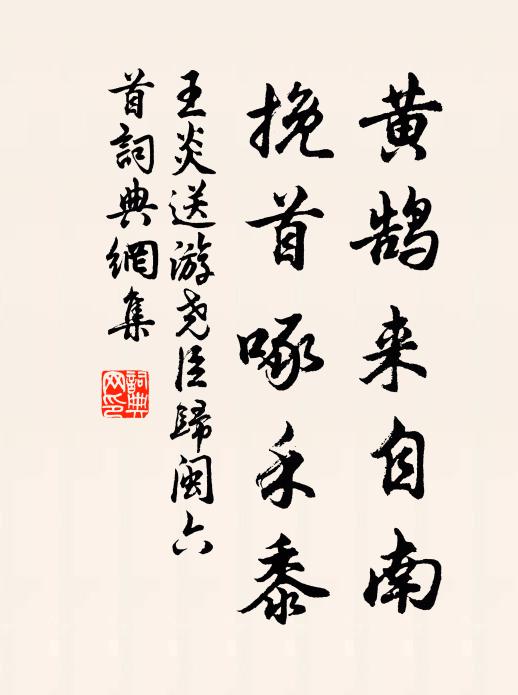 黄鹄来自南
挽首啄禾黍
王炎送游尧臣歸闽六
首詞典網集
詞典
网印